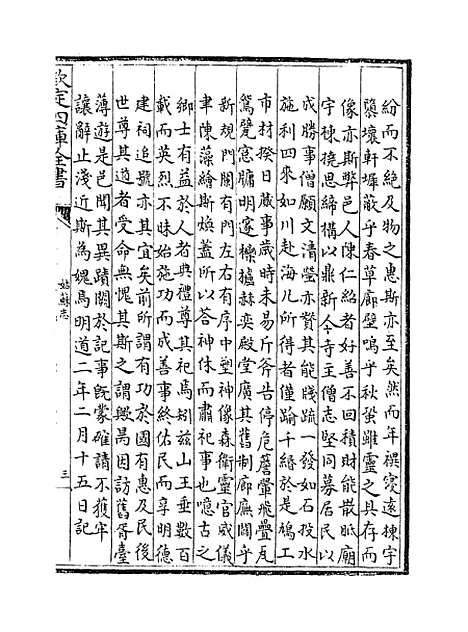 紛而不絶及物之惠斯亦至矣然而年禩寖遠棟宇
隳壞軒墀蔽乎春草廊壁鳴乎秋蛩雖靈之具存而
像亦斯弊邑人陳仁紹者好善不回積財能散眂廟
宇棟撓思締構以鼎新今寺主僧志堅同募居民以
成勝事僧願文清瑩亦賛其能牋疏一發如石投水
施利四來如川赴海凡所得者僅踰千緡於是鳩工
市材揆日蕆事歲時未易斤斧告停危簷翬飛疊瓦
鴛甃窓牗明邃櫟爐赫奕殿堂廣其舊制廊廡闢乎
新規門關有門左右有序中塑神像森衛靈官威儀
聿陳藻繪斯煥蓋所以答神休而肅祀事也噫古之
鄉士有益於人者典禮尊其祀焉矧兹山王垂數百
載而英烈不昧始施功而成善事終佑民而享明德
建祠追號亦其宜矣前所謂有功於國有惠及民後
世尊其道者受命無愧其斯之謂歟暠因訪舊胥臺
薄遊是邑聞其異蹟關於記事既蒙碓請不獲牢
讓辭止淺近斯為媿焉明道二年二月十五日記
欽定四庫全書
姑蘇志
三